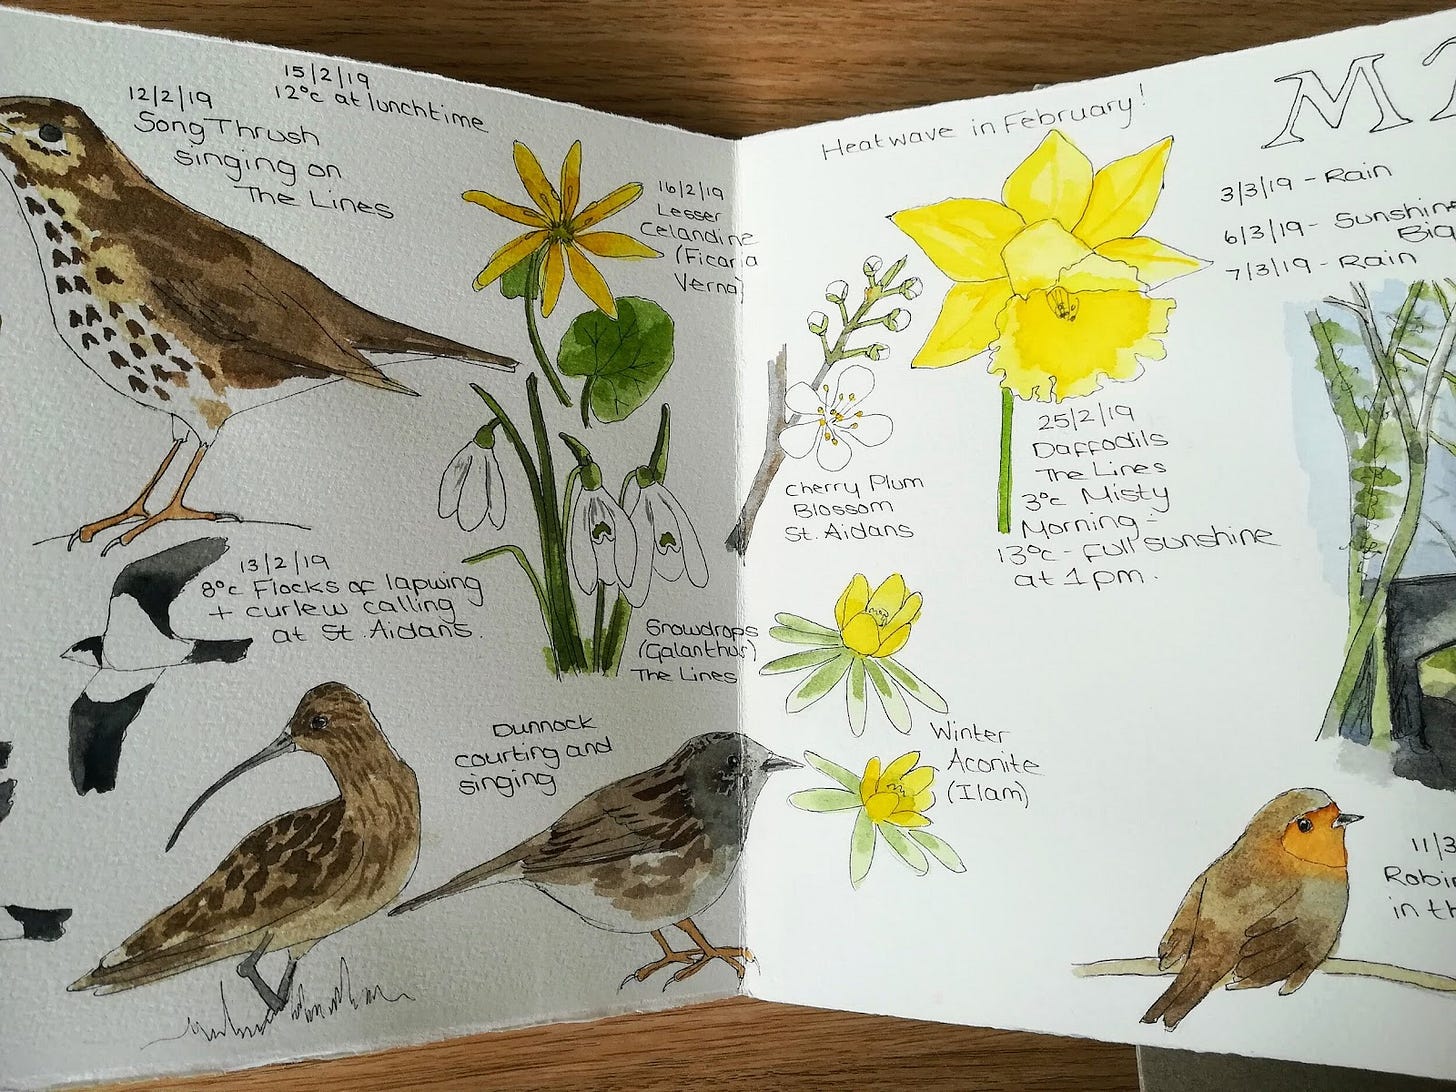 15/2/19
12°c at lunchtime
12/2/19
Song Thrush
singing on
The Lines
16/2/19
Lesser
Celandine
(Ficaria
Verna)
13/2/19
8°c Flocks of lapwing
+ curlew calling
at St. Aidans.
Snowdrops
(Galanthus)
The Lines
Dunnock
courting and
singing
Heatwave in February!
Cherry Plum
Blossom
St. Aidans
25/2/19
Daffodils
The Lines
3°c Misty
Morning -
13°c - Full sunshine
at 1pm.
Winter
Aconite
(Ilam)
M
3/3/19 - Rain
6/3/19 - Sunshine
7/3/19 - Rain
11/3
Robin
in